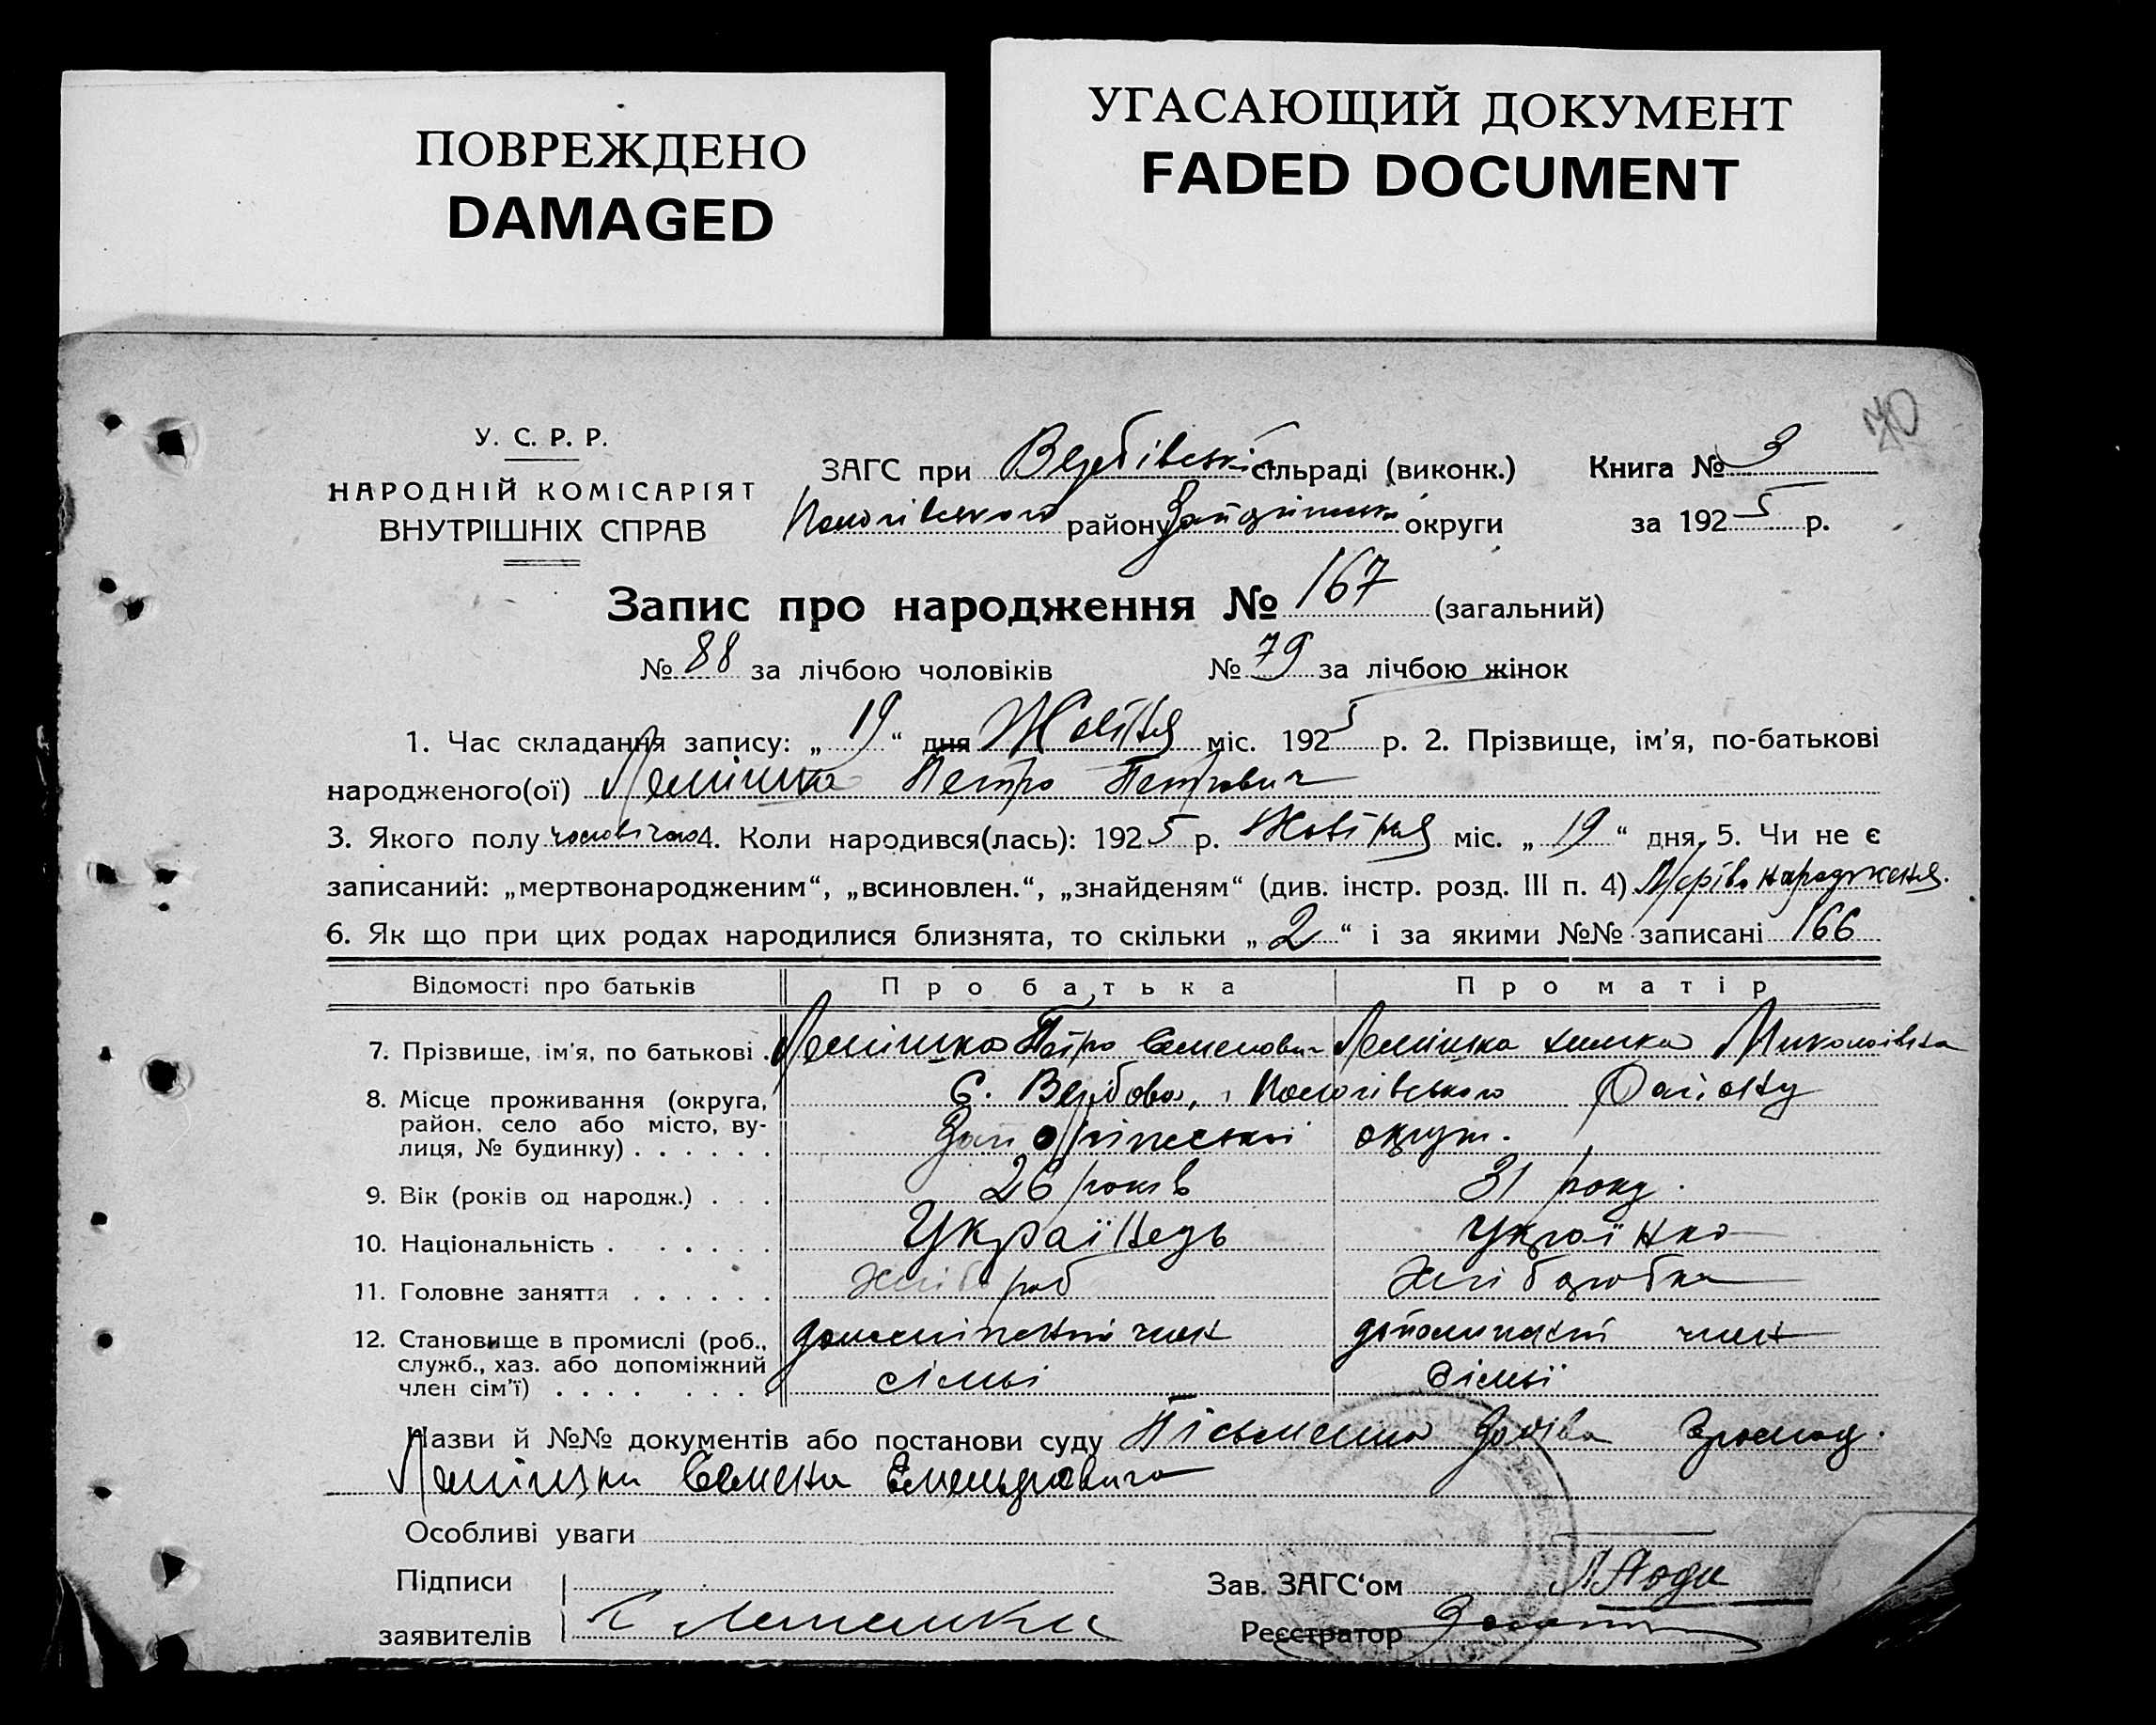 ПОВРЕЖДЕНО
DAMAGED
УГАСАЮЩИЙ ДОКУМЕНТ
FADED DOCUMENT
70
У. С. Р. Р.
НАРОДНІЙ КОМІСАРІЯТ
ВНУТРІШНІХ СПРАВ
ЗАГС при Вербівській сільраді (виконк.) Книга № 3
Пологівського району округи за 1925 р.
Запис про народження № 167 (загальний)
№ 88 за лічбою чоловіків № 79 за лічбою жінок
1. Час складання запису: „ 19 “ дня Жовтня міс. 1925 р. 2. Прізвище, ім'я, по-батькові
народженого(ої) Лемішко Петро Петрович
3. Якого полу чоловічого 4. Коли народився(лась): 1925 р. Жовтня міс. „ 19 “ дня. 5. Чи не є
записаний: „мертвонародженим“, „всиновлен.“, „знайденям“ (див. інстр. розд. III п. 4)
6. Як що при цих родах народилися близнята, то скільки „ 2 “ і за якими №№ записані 166
Відомості про батьків Про батька Про матір
7. Прізвище, ім'я, по батькові . Лемішко Петро Семенович Лемішка Миколаївна
8. Місце проживання (округа, район, село або місто, вулиця, № будинку) . . . . . . С. Вербова, Пологівського Району
округи.
9. Вік (років од народж.) . . . 26 років 31 року.
10. Національність . . . . . . Українець Українка
11. Головне заняття . . . . . . Хлібороб Хліборобка
12. Становище в промислі (роб., служб., хаз. або допоміжний член сім'ї) . . . . . . . . член член
сімьї сімьї
Назви й №№ документів або постанови суду Пісьменна заява Громад.
Лемішки Семена Емельяновича
Особливі уваги
Підписи
заявителів
Зав. ЗАГС‘ом
Реєстратор